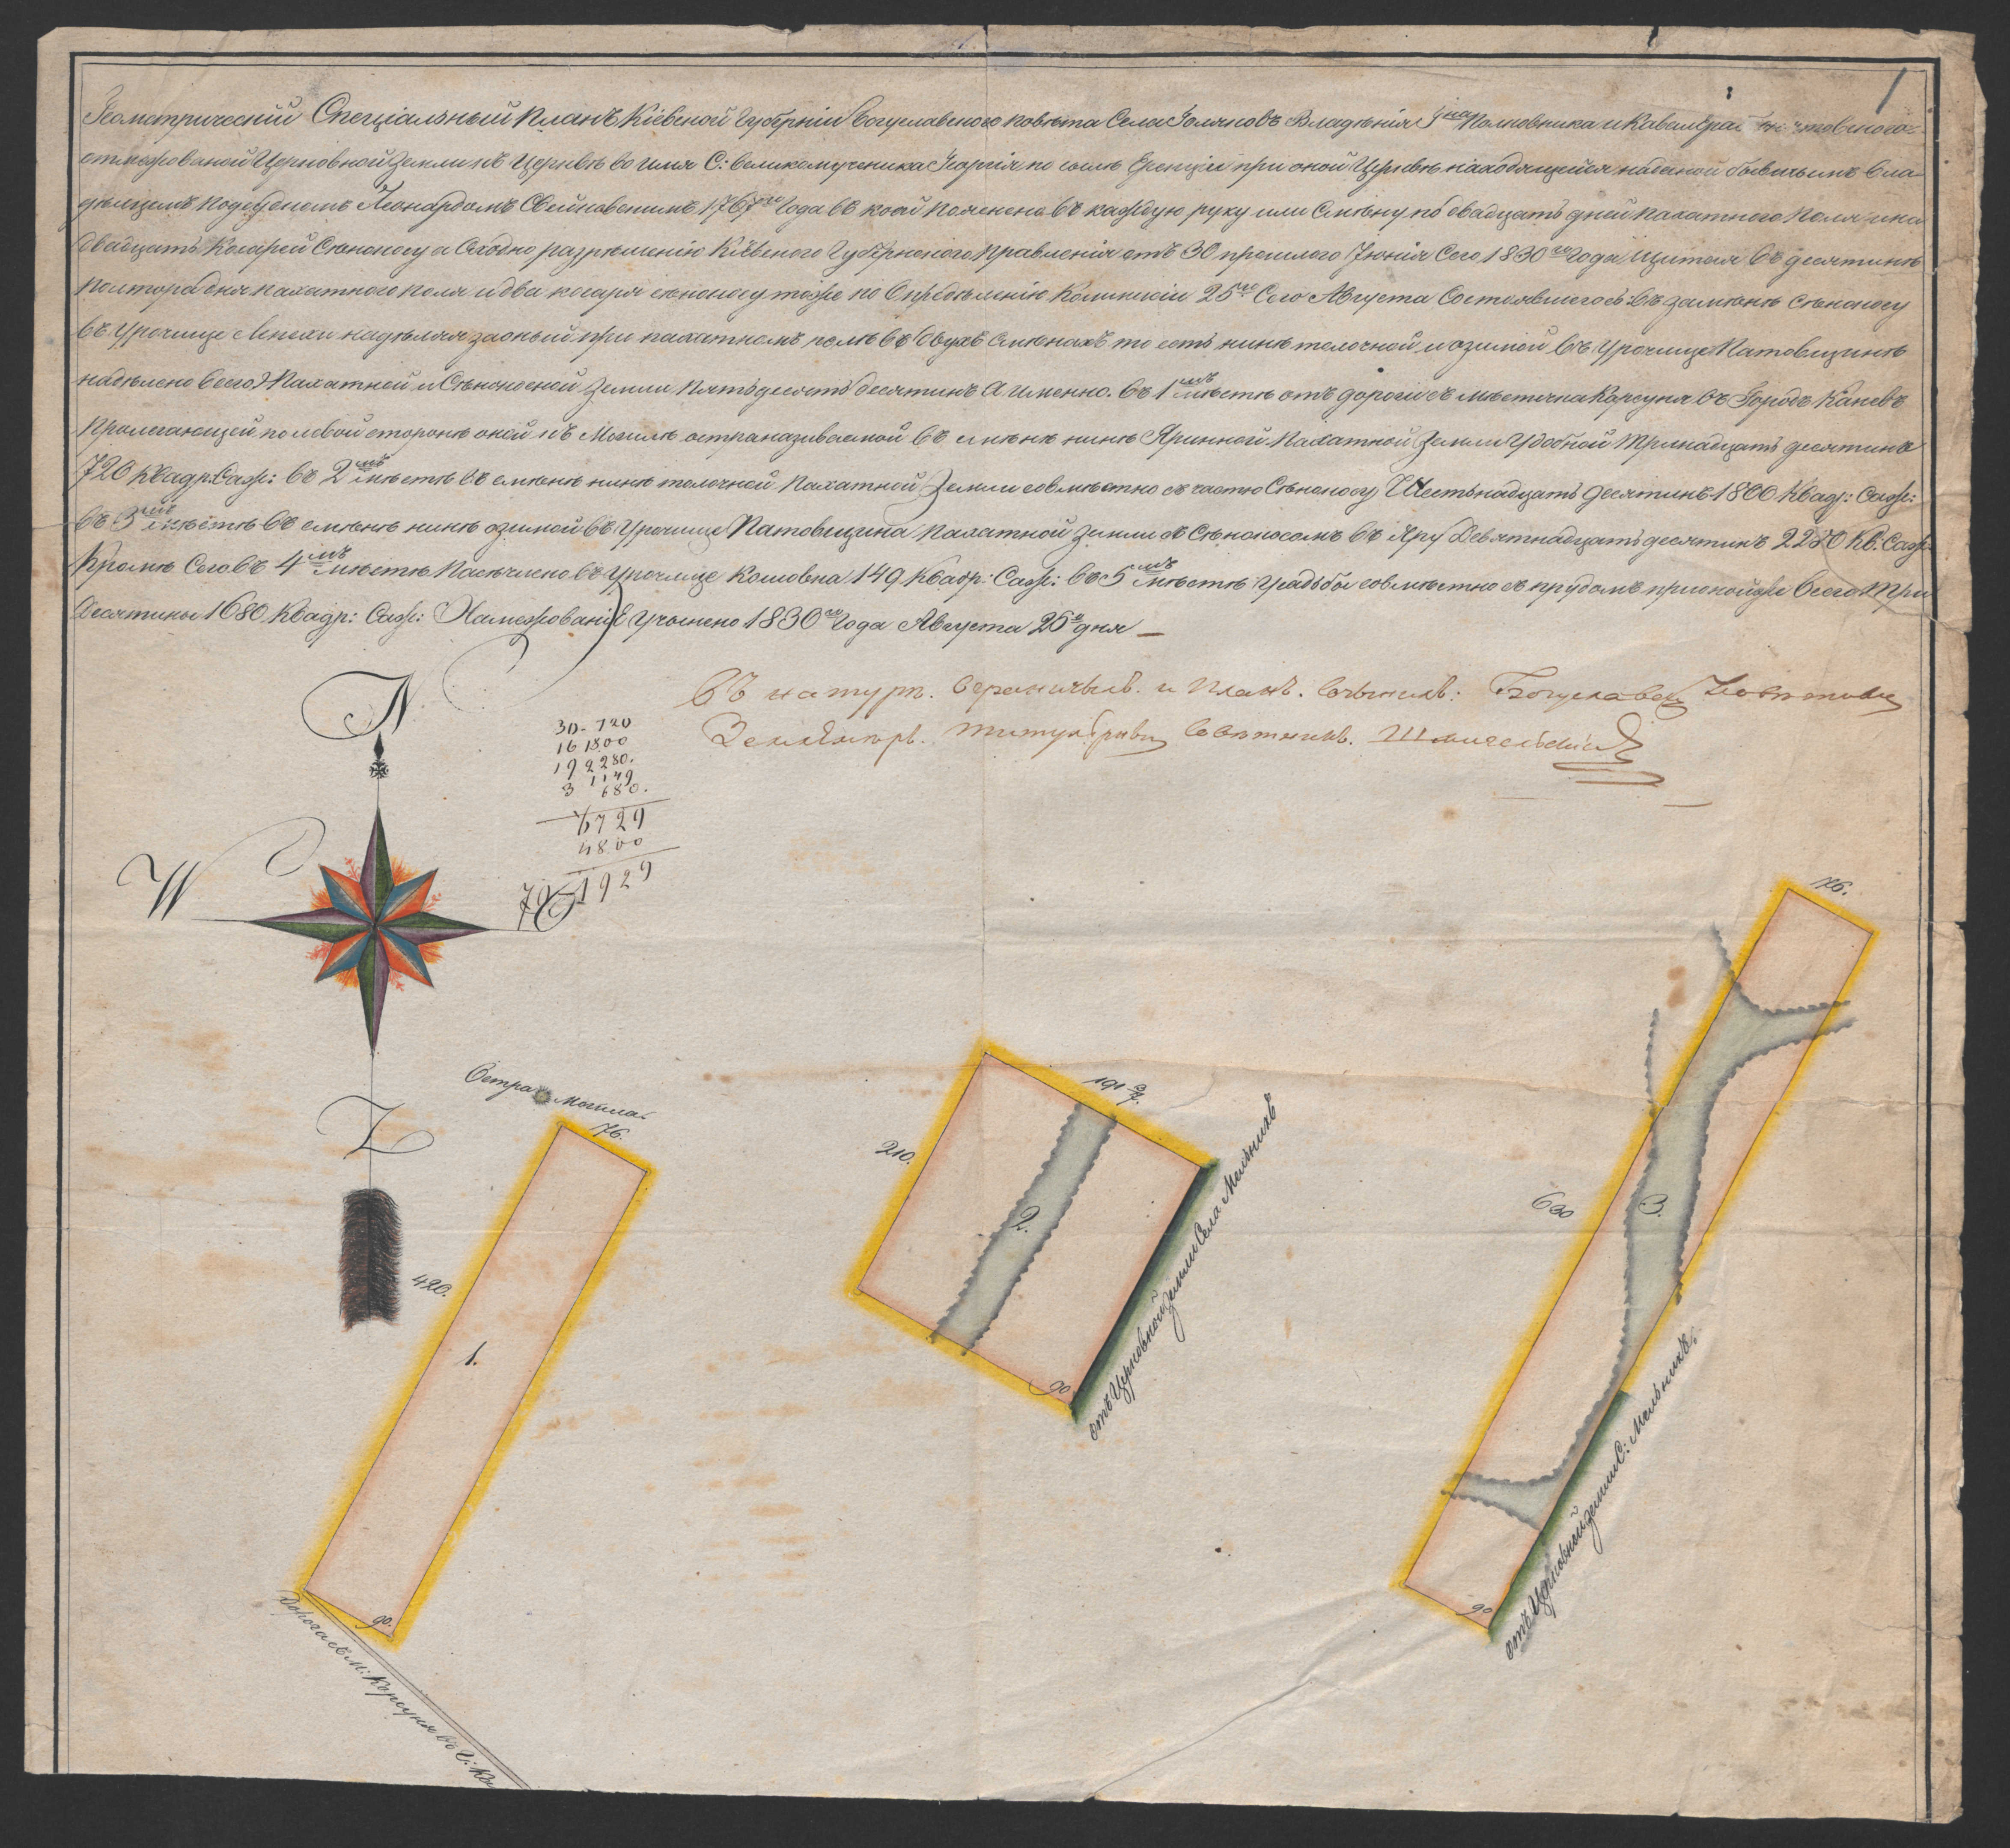 Геометрический Спеціальный Планъ Кіевской Губерніи Богуславского повѣта Села Голяковъ Владѣнія Полковника и Кавалера
отмежованой Церковной Земли къ Церквѣ во имя С: великомученика Георгія по силѣ Ерекціи при оной Церквѣ находящейся наданой бывшымъ Вла-
дѣльцемъ Леонардомъ 1767го Года въ коей пояснено въ каждую руку или Смѣну по двадцать дней пахатного поля и на
двадцать Косарей Сѣнокосу а Сходно разрѣшенію Кіевского Губернского Правленія отъ 30 прошлого Іюнія Сего 1830го Года щитая въ десятинѣ
полтора дня пахатного поля и два косаря сѣнокосу тоже по Опредѣленію Комисіи 25го Сего Августа Состоявшегося въ замѣнъ Сѣнокосу
въ Урочище надѣляя заоный при пахатномъ полѣ въ двухъ Смѣнахъ то есть нинѣ толочной и озимой въ Урочище Патовщинѣ
надѣлено всего Пахатной и Сѣнокосной Земли Пятьдесятъ десятинъ А именно. въ 1мъ мѣстѣ отъ дороги съ мѣстечка Корсуня въ Городъ Каневъ
Пролегающей по левой сторонѣ оной къ Могилѣ остра називаемой въ смѣнѣ нинѣ Яринной Пахатной Земли Удобной Тринадцать десятинъ
720 квадр: Саж: въ 2мъ мѣстѣ въ смѣнѣ нинѣ толочной Пахатной Земли совмѣстно съ частю Сѣнокосу Шестьнадцать десятинъ 1800 Квадр: Саж:
въ 3мъ мѣстѣ въ смѣнѣ нинѣ озимой въ Урочище Патовщина Пахатной Земли съ Сѣнокосомъ въ Яру Девятнадцать десятинъ 2280 Кв: Саж:
Кромѣ Сего въ 4мъ мѣстѣ Пасѣчыско въ Урочище 149 Квадр: Саж: въ 5мъ мѣстѣ Усадьбы совмѣстно съ прудомъ при оной же всего Три
десятины 1680 Квадр: Саж: Намежованіе учынено 1830го Года Августа 25го дня
Въ натурѣ. и планъ. Богуславскій Повѣтовый
Землемѣръ. Титулярный Совѣтникъ.
N
30 - 720
16 1800
19 2280.
1149
3 680.
5729
4800
70 1929
W
O
Z
76.
Остра Могила.
76.
420.
1.
90.
Дорога съ М: Корсуня въ Г: Ка
191 3/7.
210.
2.
90
отъ Церковной земли Села Мельникъ
630
3.
90
отъ Церковной земли С: Мельникъ.
1